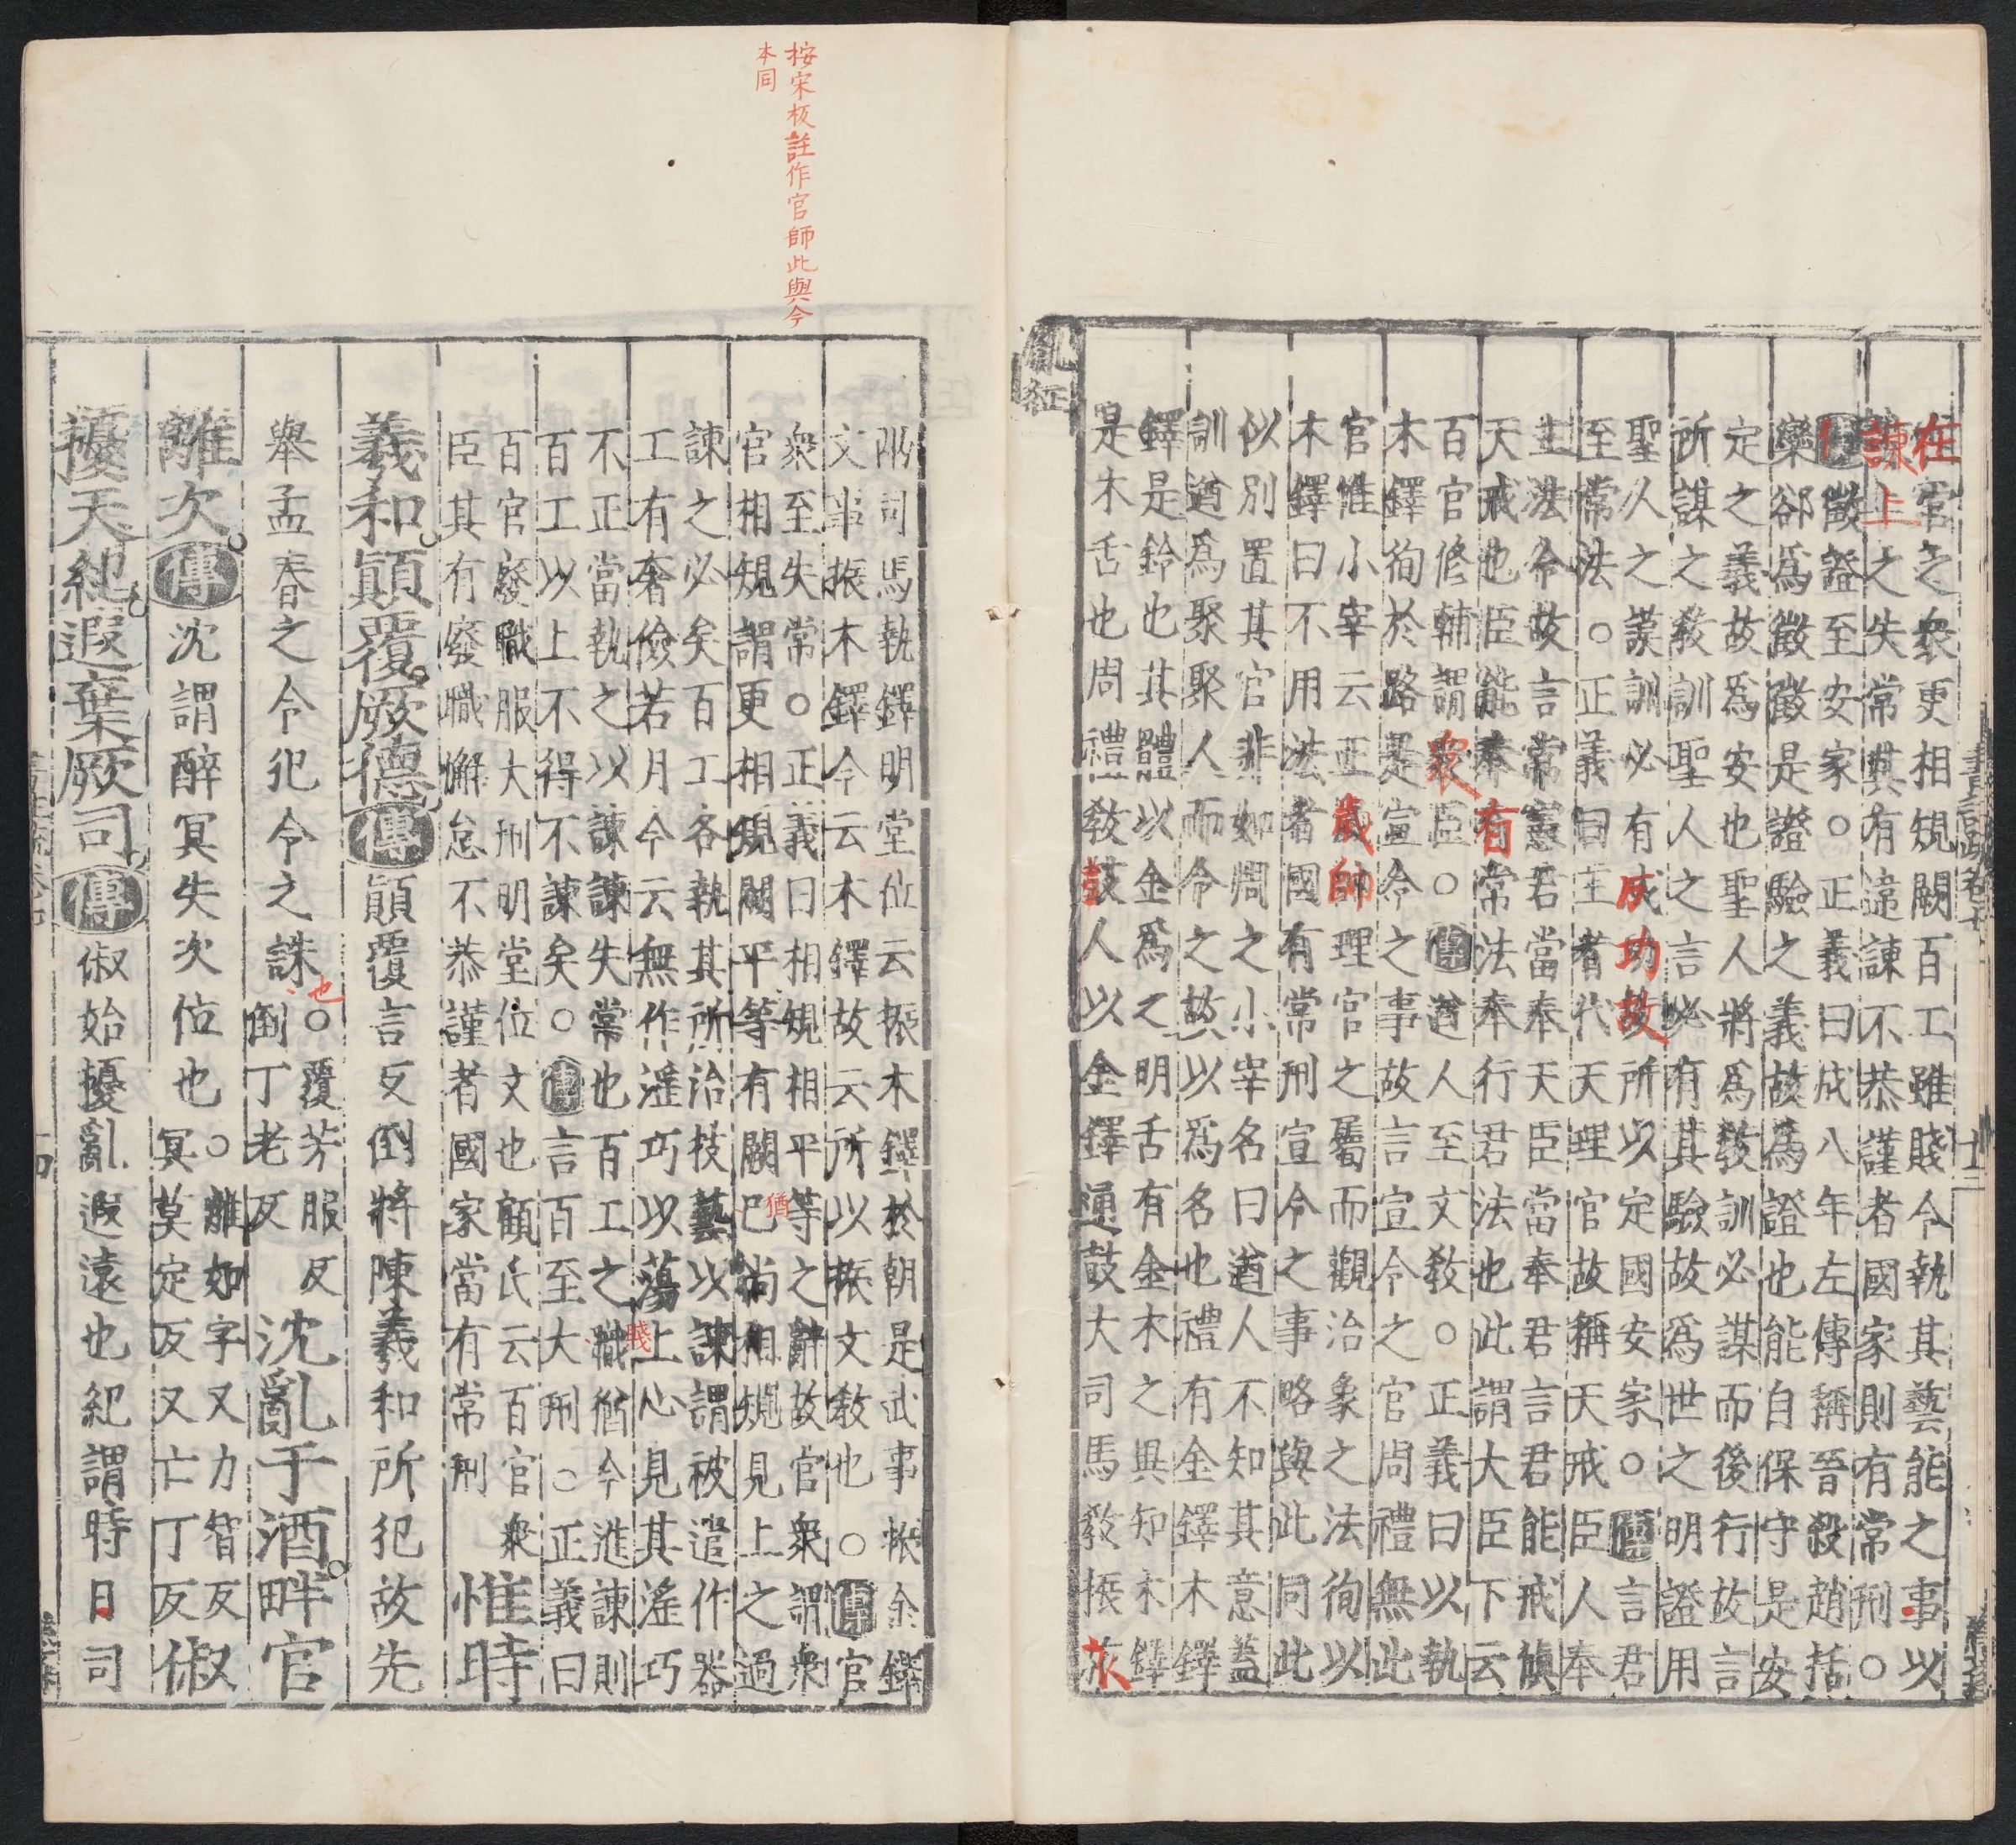 在官之衆更相規闕百工雖賤令執其藝能之事以
諫上之失常其有違諫不恭謹者國家則有常刑○
傳徵證至安家○正義曰成八年左傳稱晉殺趙括
欒郤爲徵徵是證驗之義故爲證也能自保守是安
定之義故爲安也聖人將爲教訓必謀而後行故言
所謀之教訓聖人之言必有其驗故爲世之明證用
聖人之謨訓必有成功故所以定國安家○傳言君
至常法○正義曰王者代天理官故稱天戒臣人奉
主法令故言常憲君當奉天臣當奉君言君能戒愼
天戒也臣能奉有常法奉行君法也此謂大臣下云
百官修輔謂衆臣○傳遒人至文教○正義曰以執
木鐸徇於路是宣令之事故言宣令之官周禮無此
官惟小宰云正歲帥理官之屬而觀治象之法徇以
木鐸曰不用法者國有常刑宣令之事略與此同此
似別置其官非如周之小宰名曰遒人不知其意蓋
訓遒爲聚聚人而令之故以爲名也禮有金鐸木鐸
鐸是鈴也其體以金爲之明舌有金木之異知木鐸
是木舌也周禮教鼓人以金鐸通鼓大司馬教振旅
兩司馬執鐸明堂位云振木鐸於朝是武事振金鐸
文事振木鐸今云木鐸故云所以振文教也○傳官
衆至失常○正義曰相規相平等之辭故官衆謂衆
官相規謂更相規闕平等有闕已尚相規見上之過
猶
諫之必矣百工各執其所治技藝以諫謂被遣作器
工有奢儉若月令云無作淫巧以蕩上心見其淫巧
不正當執之以諫諫失常也百工之職猶今進諫則
賤
百工以上不得不諫矣○傳言百至大刑○正義曰
百官廢職服大刑明堂位文也顧氏云百官衆
臣其有廢職懈怠不恭謹者國家當有常刑
惟時
羲和顚覆厥德傳顚覆言反倒將陳羲和所犯故先
舉孟春之令犯令之誅也○覆芳服反
倒丁老反
沈亂于酒畔官
離次傳沈謂醉冥失次位也○離如字又力智反
冥莫定反又亡丁反
俶
擾天紀遐棄厥司傳俶始擾亂遐遠也紀謂時日司
按宋板註作官師此與今
本同
胤征